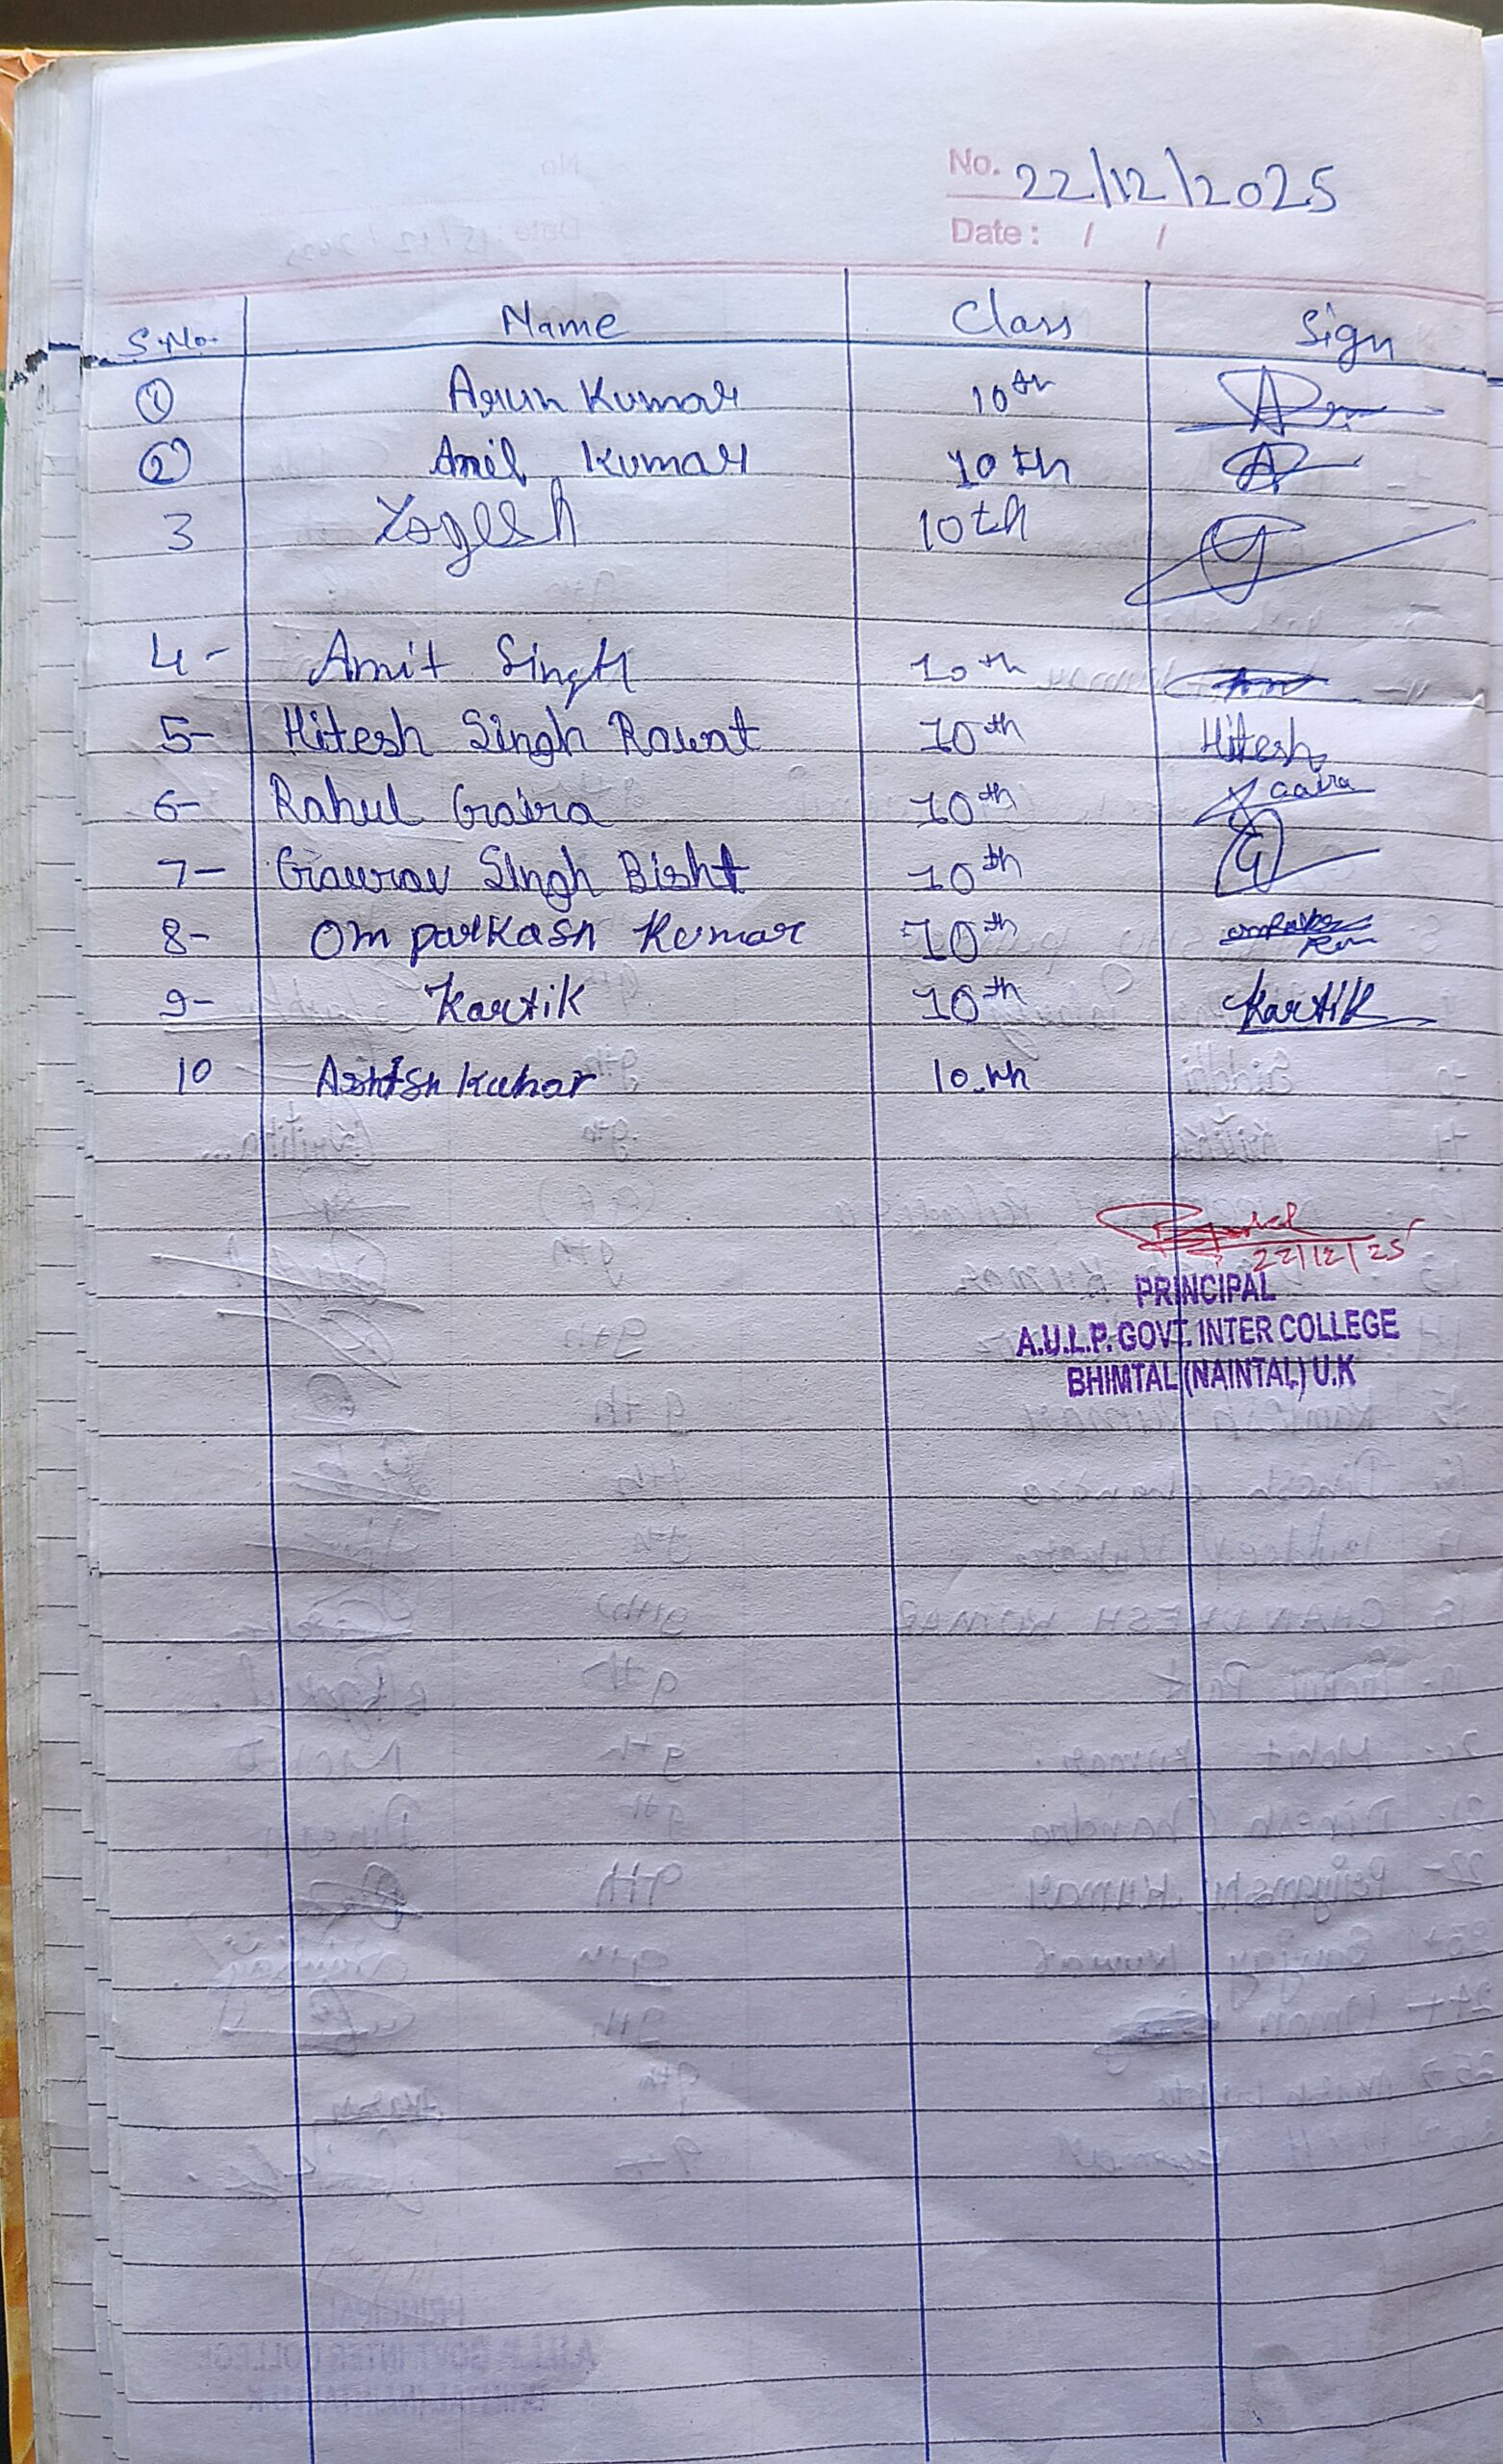 No. 22/12/2025
Date : / /
S.No. Name Class Sign
① Arun Kumar 10th
② Anil Kumar 10th
3 Yogesh 10th
4- Amit Singh 10th
5- Hitesh Singh Rawat 10th Hitesh
6- Rahul Gaira 10th Gaira
7- Gaurav Singh Bisht 10th
8- Om parkash Kumar 10th
9- Kartik 10th Kartik
10 Ashish Kuhar 10.th
22/12/25
PRINCIPAL
A.U.L.P. GOVT. INTER COLLEGE
BHIMTAL (NAINTAL) U.K